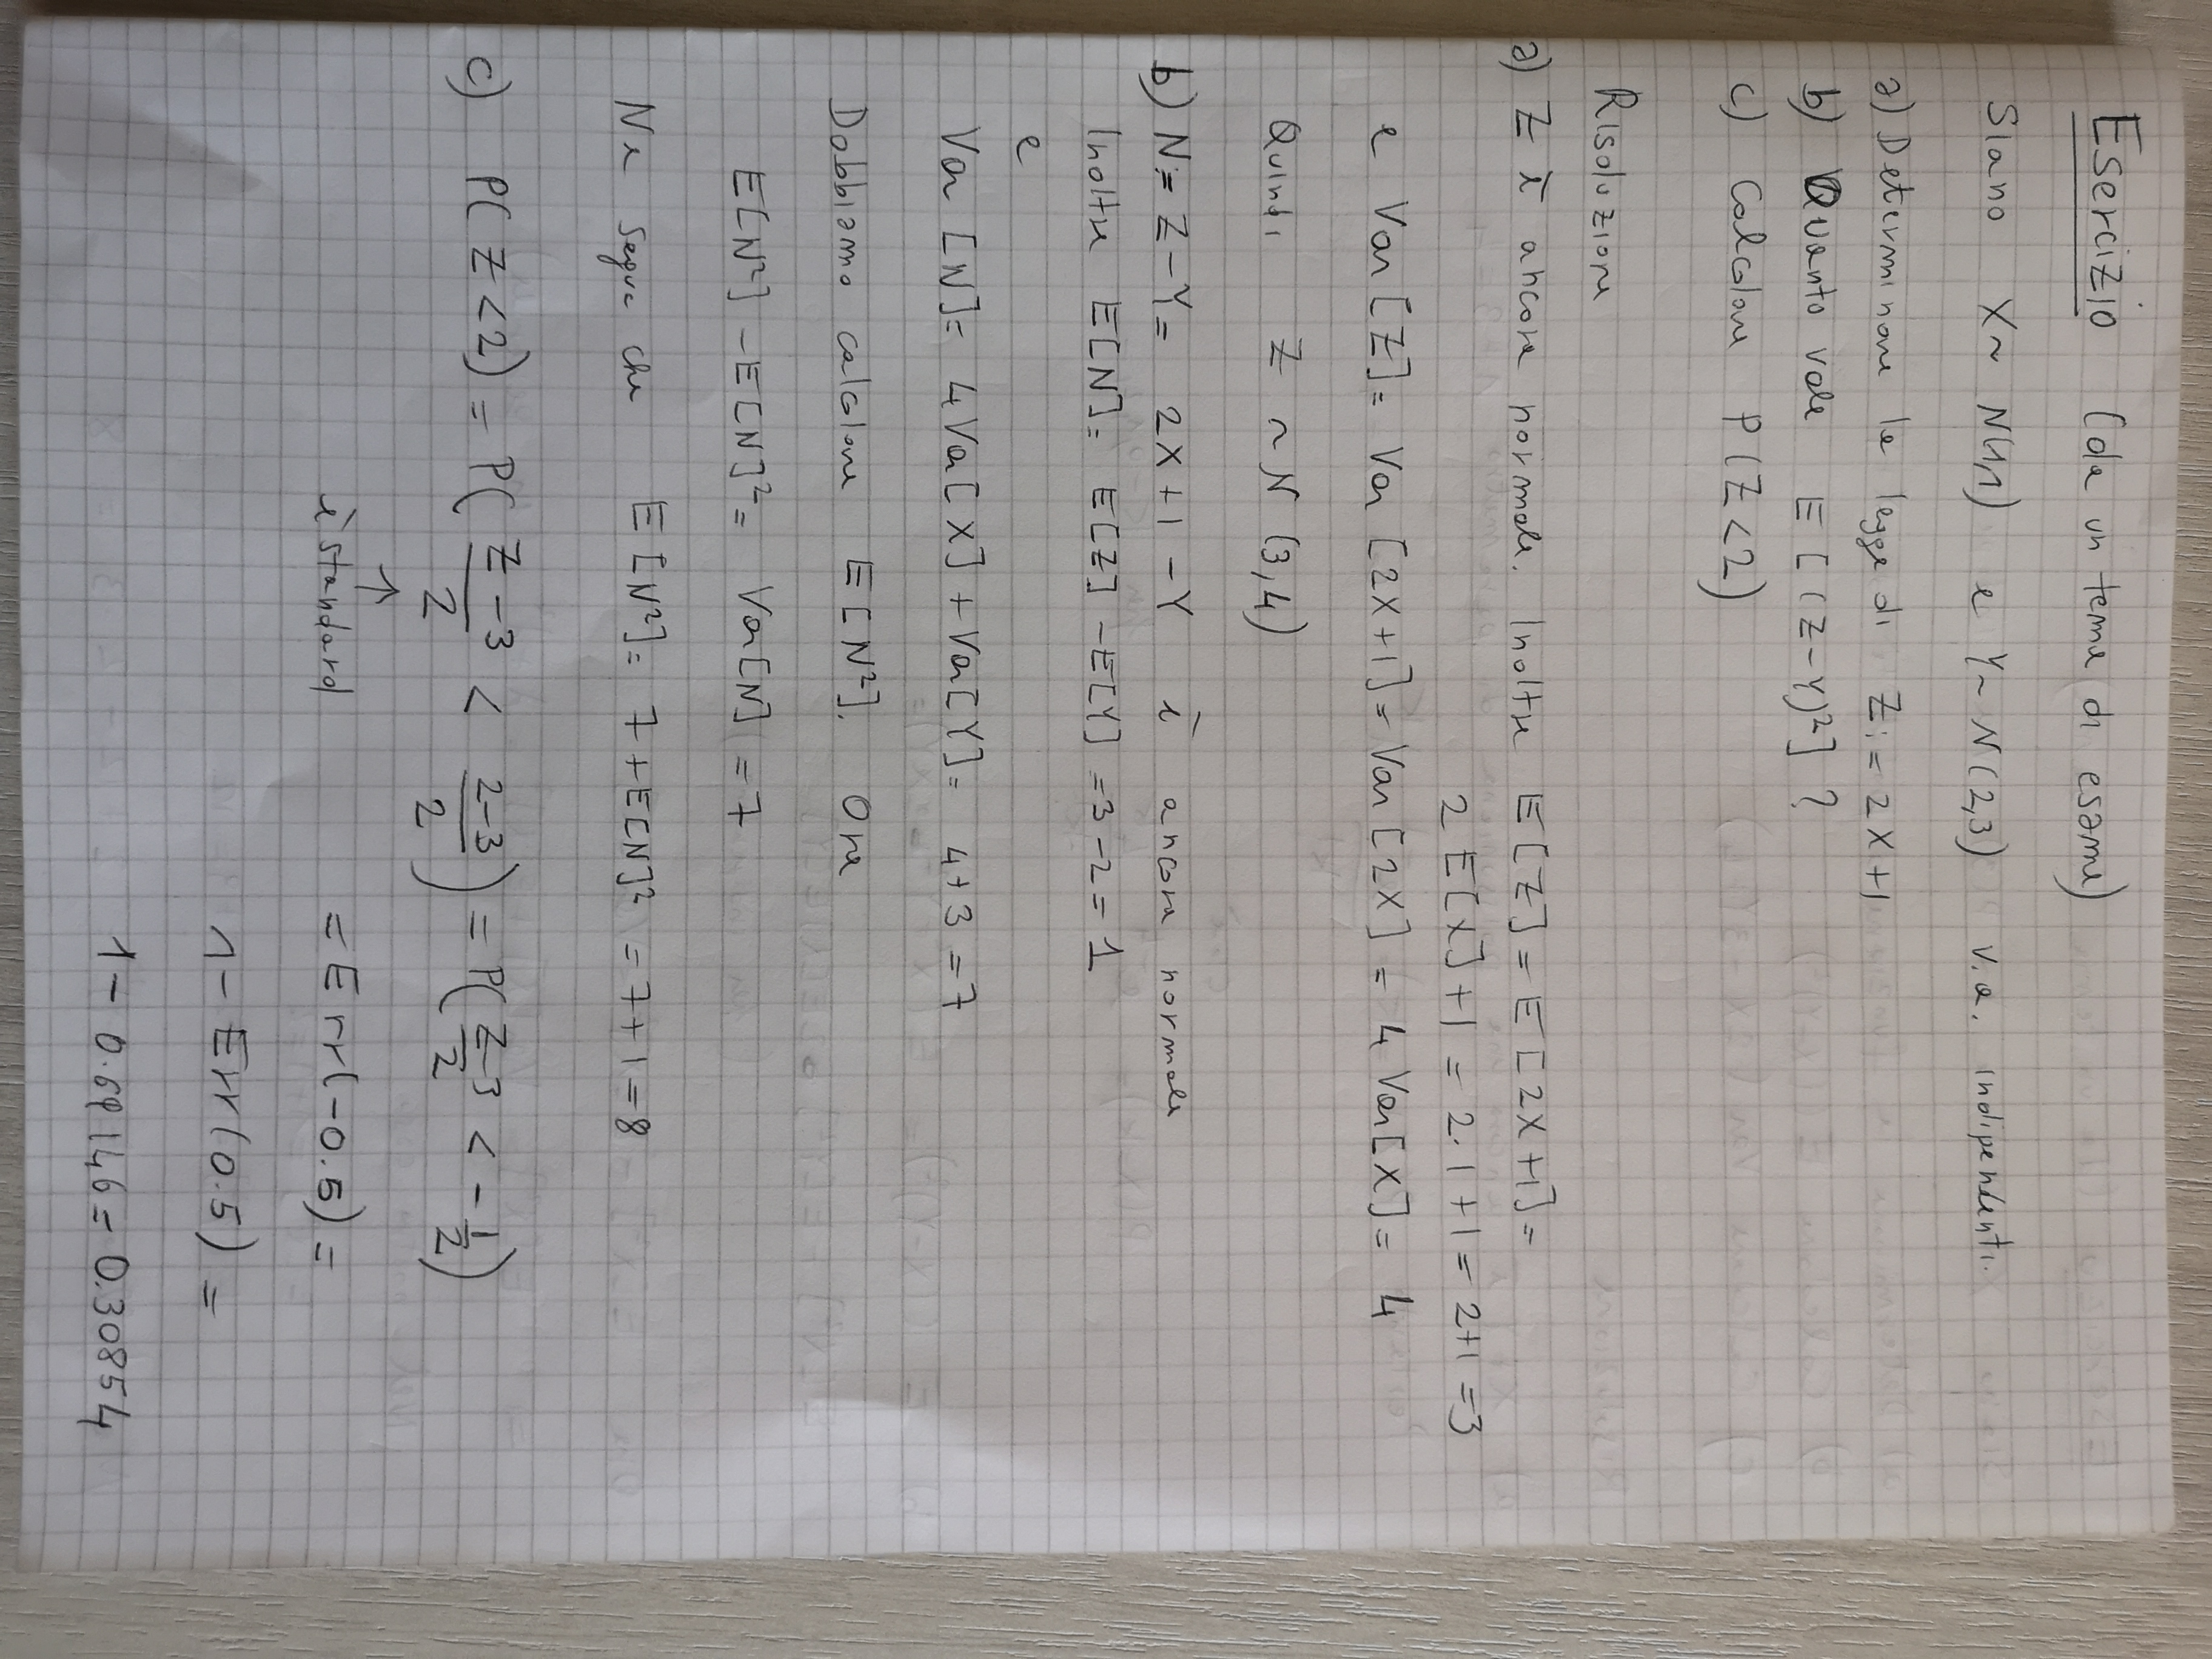 Esercizio (da un tema di esame)
Siano X~ N(1,1) e Y~ N(2,3) v.a. indipendenti.
a) Determinare la legge di Z:= 2X+1
b) Quanto vale E[(Z-Y)²]?
c) Calcolare P(Z<2)
Risoluzione
a) Z è ancora normale. Inoltre E[Z]=E[2X+1]=
2E[X]+1 = 2·1+1= 2+1=3
e Var[Z]= Var[2X+1]=Var[2X] = 4 Var[X]= 4
Quindi Z ~N (3,4)
b) N:= Z-Y= 2X+1-Y è ancora normale
Inoltre E[N]= E[Z]-E[Y] =3-2= 1
e
Var [N]= 4Var[X]+Var[Y]= 4+3=7
Dobbiamo calcolare E[N²]. Ora
E[N²]-E[N]²= Var[N] =7
Ne segue che E[N²]= 7+E[N]² =7+1=8
c) P(Z<2)= P( (Z-3)/2 < (2-3)/2 ) = P( (Z-3)/2 < -1/2 )
↑
è standard =Err(-0.5)=
1- Err(0.5) =
1- 0.69146= 0.30854